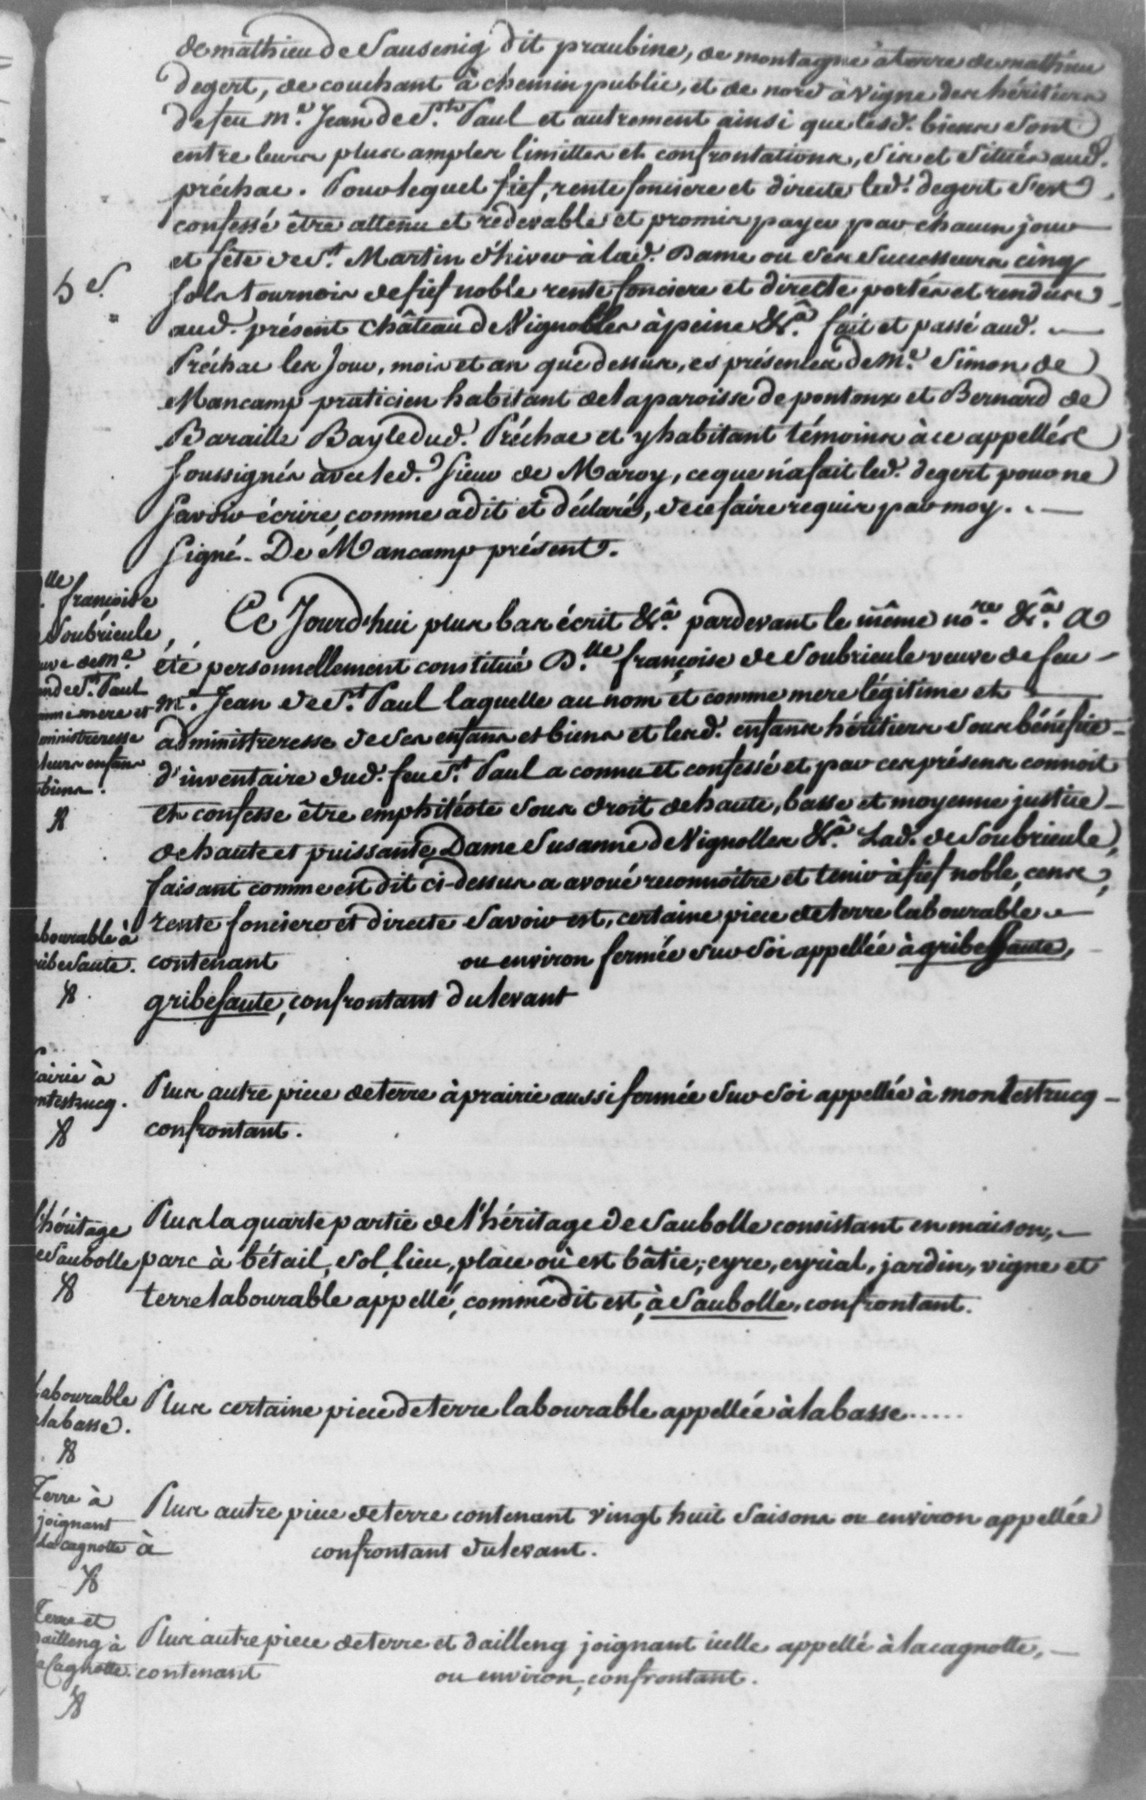 de mathieu de Sausenig dit praubine, de montagne à terre de mathieu
degert, de couchant à chemin public, et de nord à vigne des héritiers
de feu m.e Jean de S.t Paul et autrement ainsi que lesd. biens sont
entre leurs plus amples limittes et confrontations, sis et situés aud.
préchac. Pour lequel fief, rente fonciere et directe led. degert s'est
confessé être attenu et redevable et promis payer par chacun jour
et fête de S.t Martin d'hiver à lad. Dame ou ses successeurs cinq
5 s.
sols tournois de fief noble rente fonciere et directe portés et rendus
aud. présent Château de Vignolles à peine &.a fait et passé aud.
Préchac les Jour, mois et an que dessus, es présences de m.e Simon de
Mancamp praticien habitant de la paroisse de pontonx et Bernard de
Baraille Bayle dud. Préchac et y habitant témoins à ce appellés
soussignés avec led. Sieur de Maroy, ce que n'a fait led. degert pour ne
savoir écrire, comme a dit et déclaré, de ce faire requis par moy.
Signé. De Mancamp présent.
lle françoise
Soubrieule,
uve de m.e
an de S.t Paul
mme mere et
ministreresse
leurs enfans
biens.
Ce Jourd'hui plus bas écrit &.a pardevant le même no.re &.a A
été personnellement constitué D.lle françoise de Soubrieule veuve de feu
m.e Jean de S.t Paul laquelle au nom et comme mere légitime et
administreresse de ses enfans et biens et lesd. enfans héritiers sous bénéfice
d'inventaire dud. feu S.t Paul a connu et confessé et par ces présens connoit
et confesse être emphitéote sous droit de haute, basse et moyenne justice
de haute et puissante Dame Susanne de Vignolles &.a Lad. de Soubrieule,
faisant comme est dit ci-dessus a avoué reconnoitre et tenir à fief noble, cens,
rente fonciere et directe savoir est, certaine piece de terre labourable
labourable à
gribesaute.
contenant ou environ fermée sur soi appellée à gribessaute,
gribesaute, confrontant du levant
rairie à
ntestrucq.
Plus autre piece de terre à prairie aussi fermée sur soi appellée à montestrucq
confrontant.
l'héritage
e Saubolle
Plus la quarte partie de l'héritage de Saubolle consistant en maison,
parc à bétail, sol, lieu, place où est bâtie, eyre, eyrial, jardin, vigne et
terre labourable appellé, comme dit est, à Saubolle, confrontant.
Labourable
à labasse.
Plus certaine piece de terre labourable appellée à labasse......
Terre à
joignant
la cagnotte
Plus autre piece de terre contenant vingt huit saisons ou environ appellée
à confrontant du levant.
Terre et
dailleng à
a Cagnotte.
Plus autre piece de terre et dailleng joignant icelle appellé à la cagnotte,
contenant ou environ, confrontant.